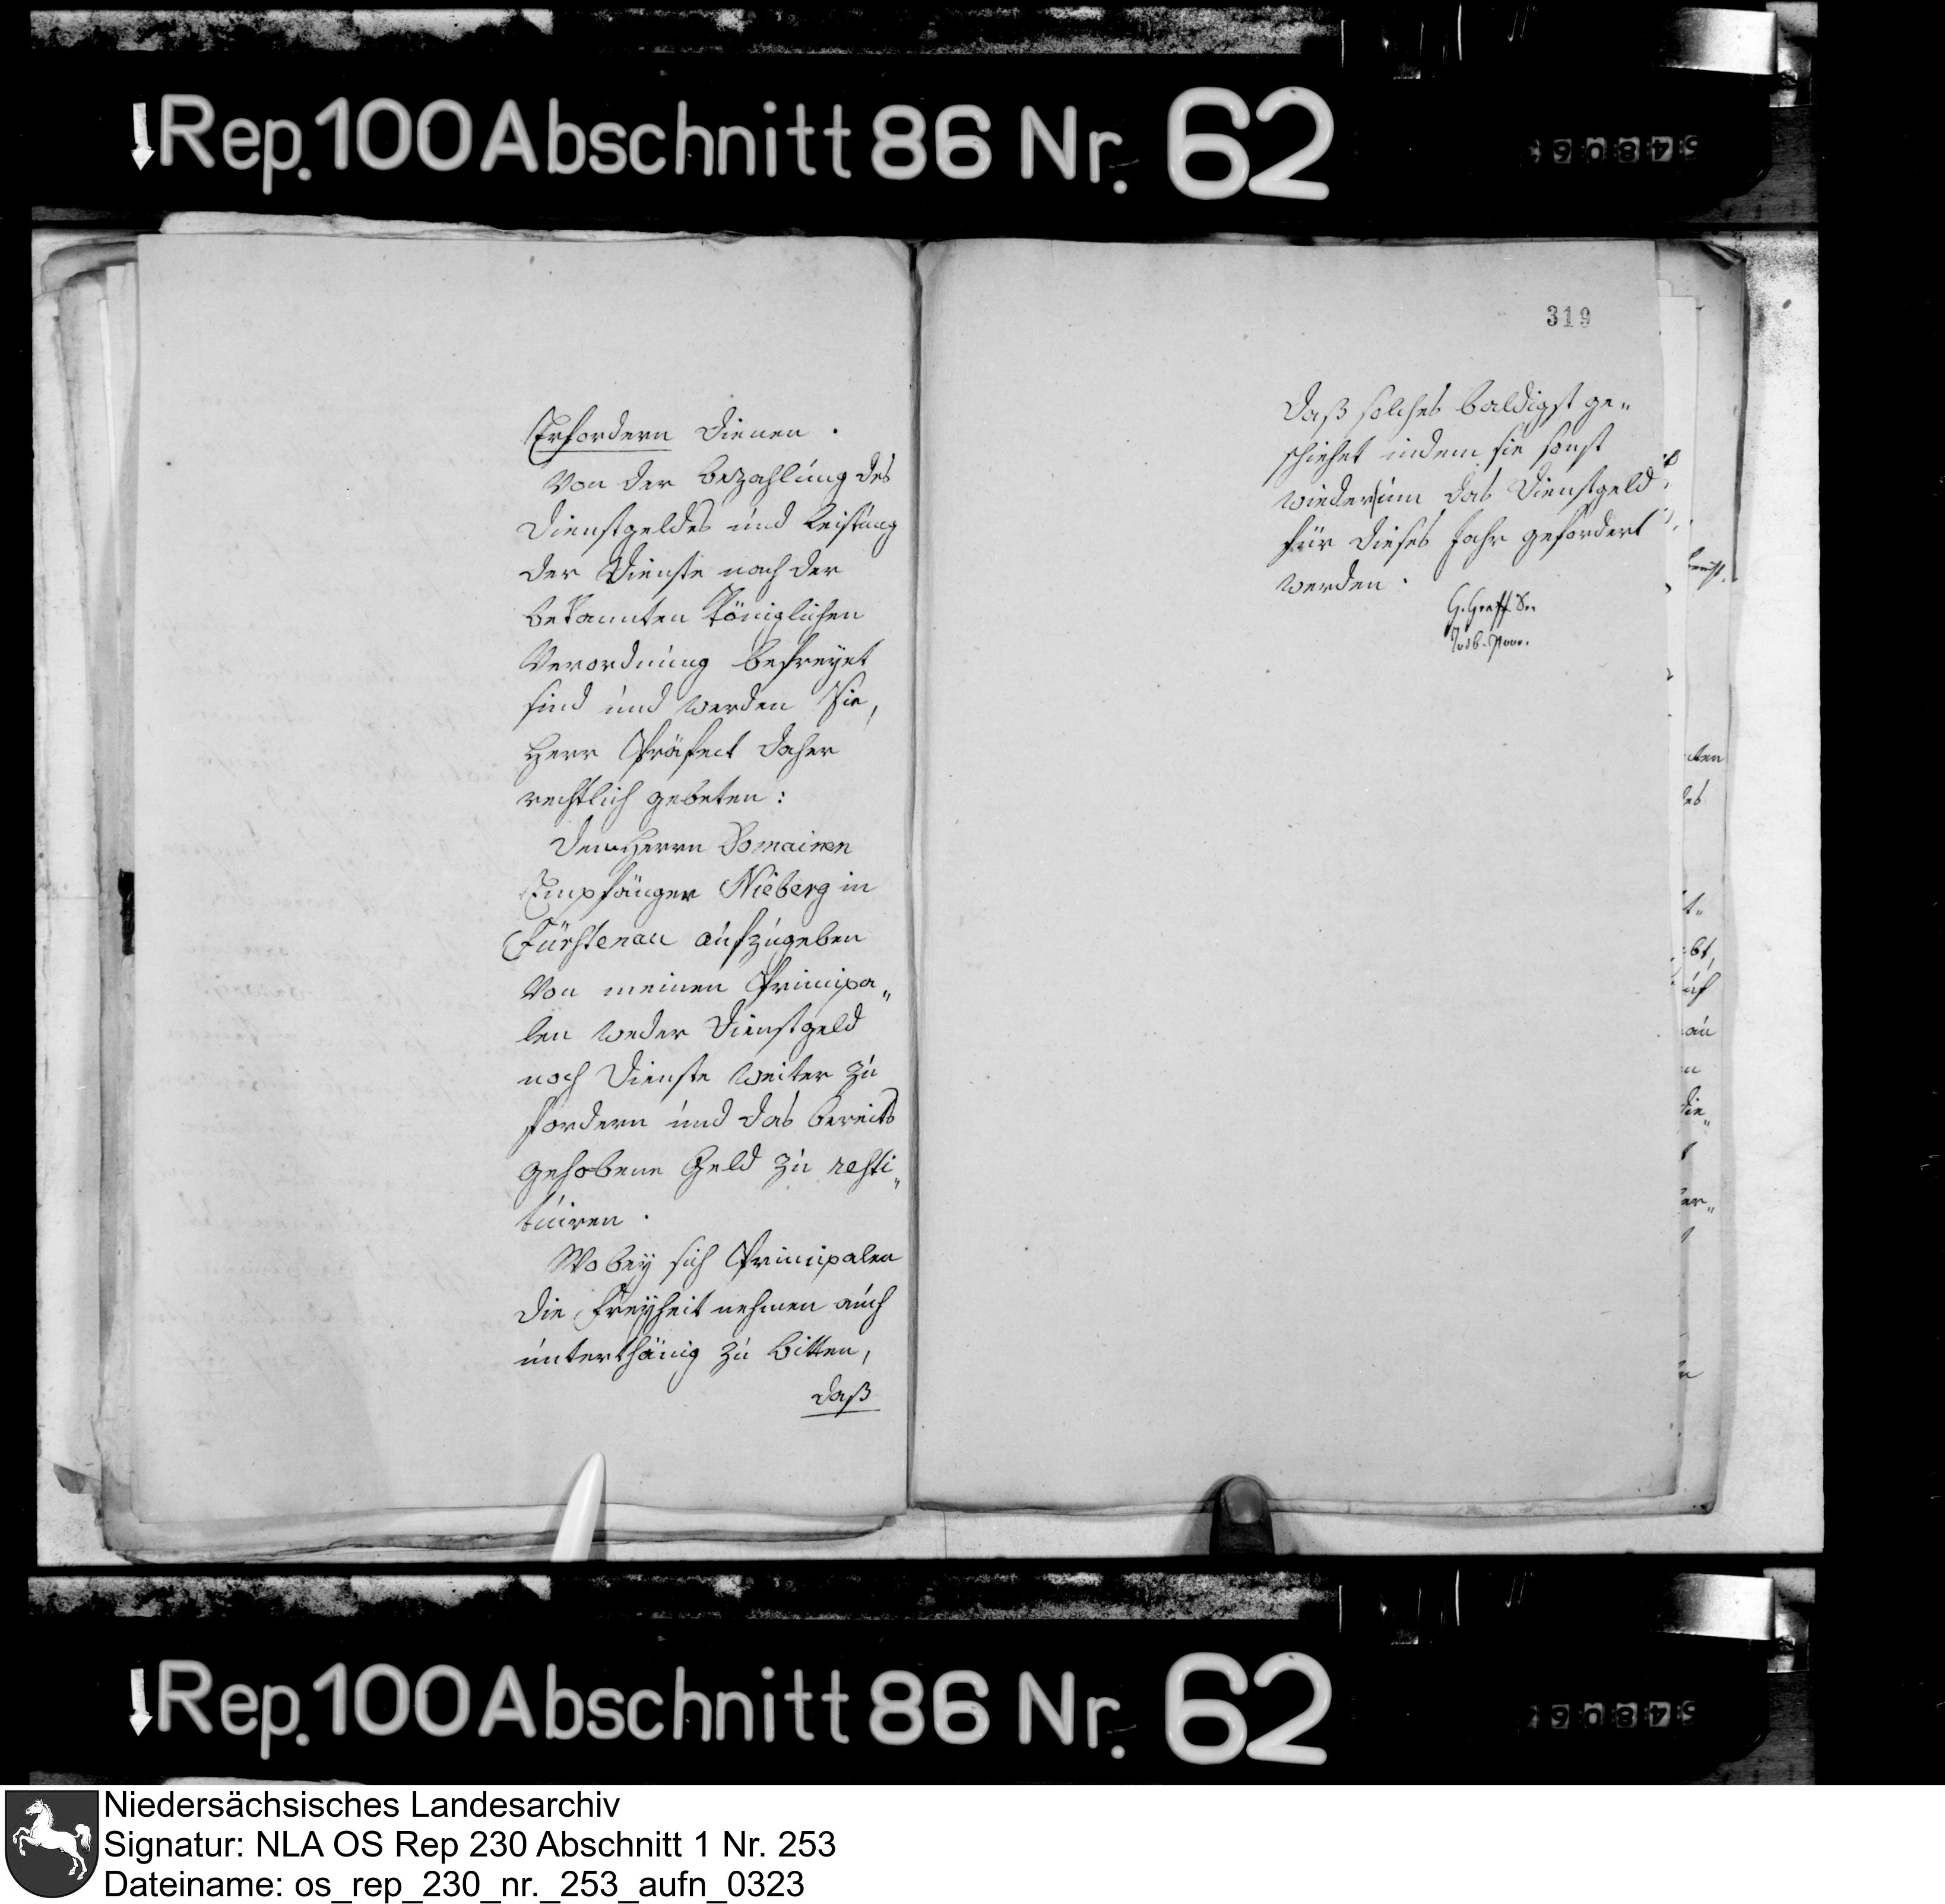 Rep. 100 Abschnitt 86 Nr. 62
Erfordern dienen.
Von der Bezahlung des
Dienstgeldes und Leistung
der Dienste nach der
bekannten Königlichen
Verordnung befreyet
sind und werden Sie,
Herr Präfect daher
rechtlich gebeten:
Dem Herrn Domainen
Empfänger Nieberg in
Fürstenau aufzugeben
von meinen Principa„
len weder Dienstgeld
noch Dienste weiter zu
fordern und das bereits
gehobene Geld zu resti„
tuiren.
Wobey sich Principalen
die Freyheit nehmen auch
unterthänig zu bitten,
daß
319
daß solches baldigst ge„
schiehet indem sie sonst
wiederum das Dienstgeld
für dieses Jahr gefordert
werden.
G. Graff
Rep. 100 Abschnitt 86 Nr. 62
Niedersächsisches Landesarchiv
Signatur: NLA OS Rep 230 Abschnitt 1 Nr. 253
Dateiname: os_rep_230_nr._253_aufn_0323